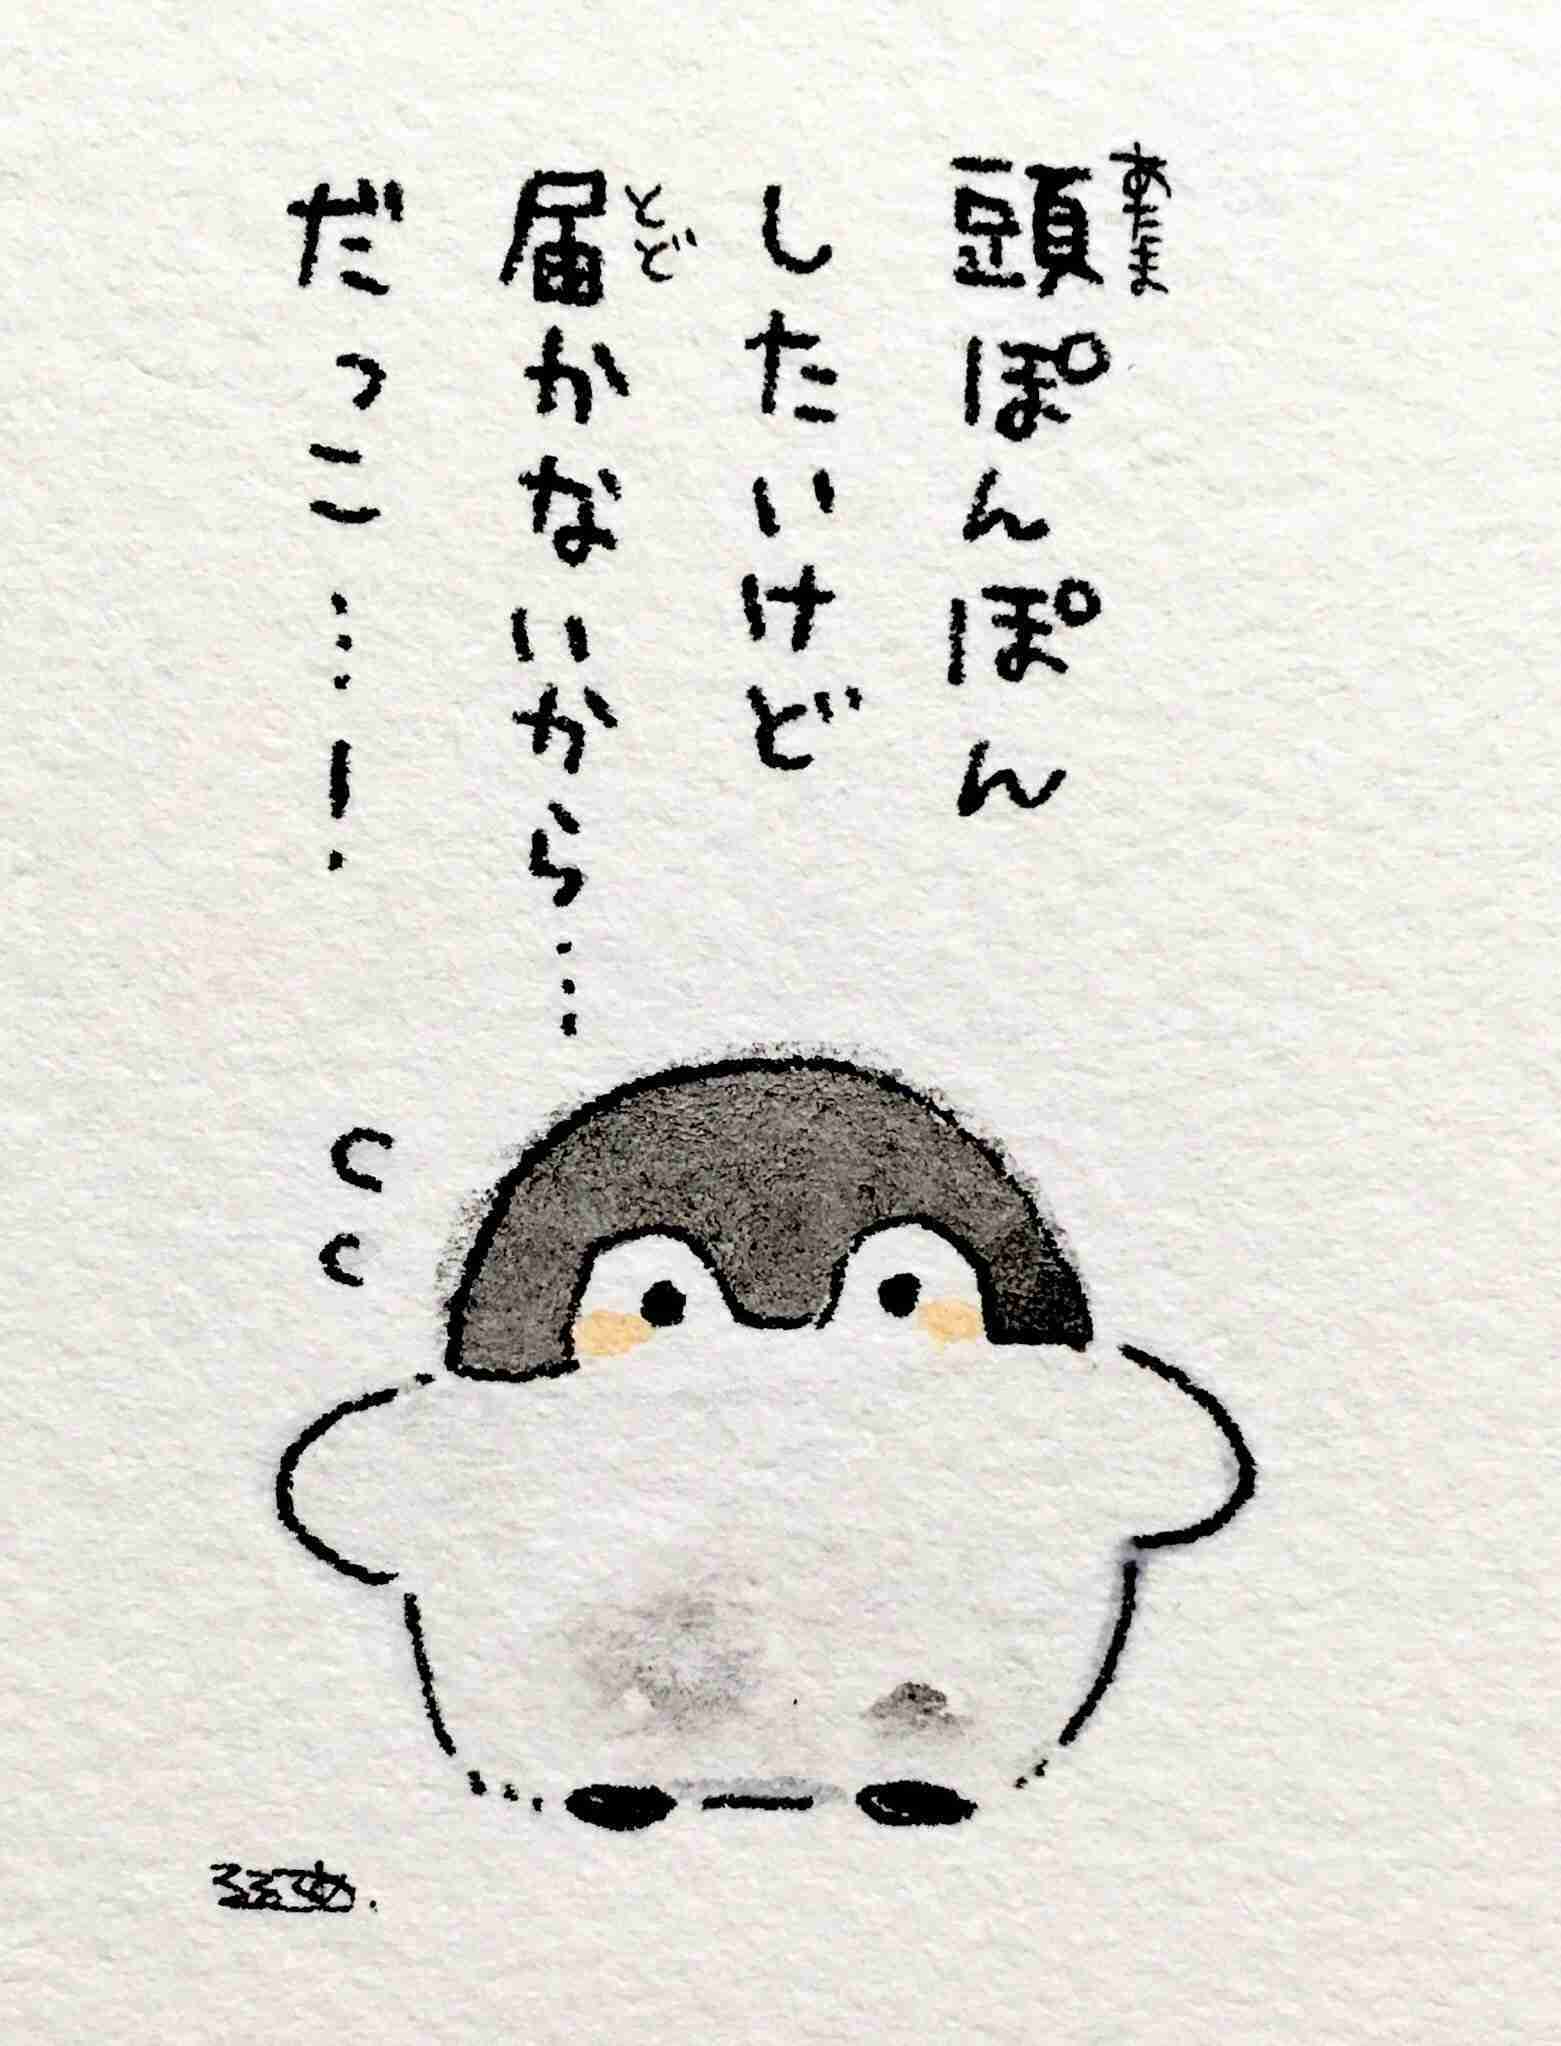 頭ぽんぽん
あたま
したいけど
届かないから…
とど
だっこ…!
るるてあ.